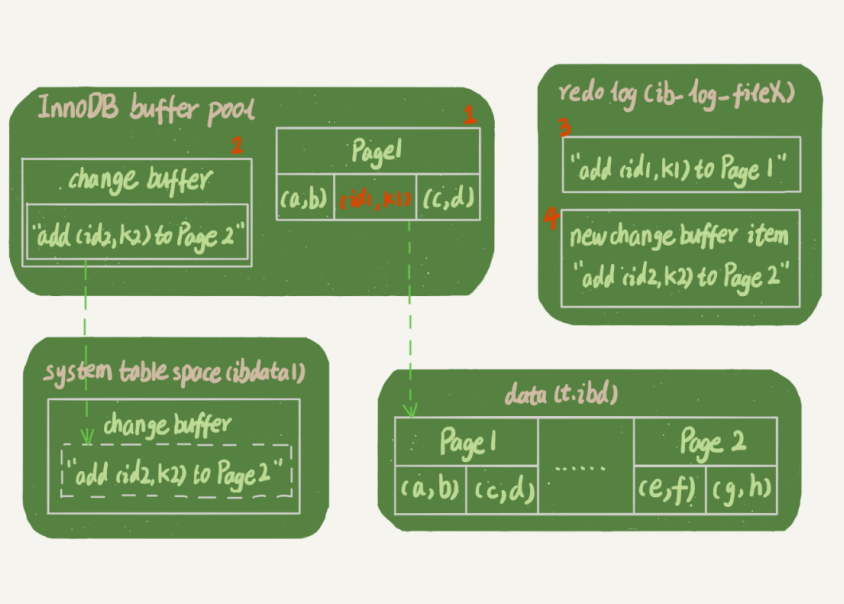 InnoDB buffer pool
1
2
Page1
change buffer
(a,b) (id1,k1) (c,d)
"add (id2,k2) to Page 2"
redo log (ib-log-fileX)
3
"add (id1,k1) to Page 1"
4
new change buffer item
"add (id2,k2) to Page 2"
system table space (ibdata1)
change buffer
"add (id2,k2) to Page 2"
data (t.ibd)
Page1 ...... Page 2
(a,b) (c,d) (e,f) (g,h)